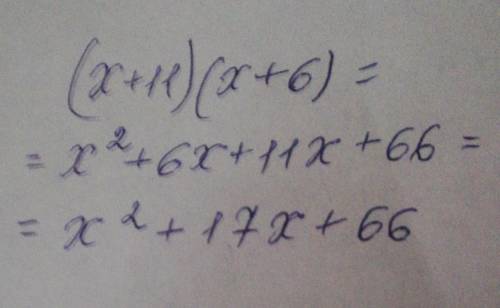 (x+11)(x+6) =
= x² + 6x + 11x + 66 =
= x² + 17x + 66